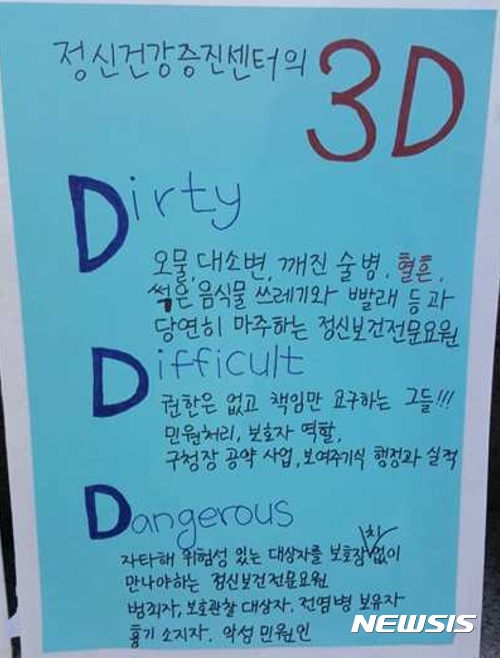 정신건강증진센터의 3D
Dirty
오물, 대소변, 깨진 술병, 혈흔,
썩은 음식물 쓰레기와 빨래 등과
당연히 마주하는 정신보건전문요원
Difficult
권한은 없고 책임만 요구하는 그들!!!
민원처리, 보호자 역할,
구청장 공약 사업, 보여주기식 행정과 실적
Dangerous
자타해 위험성 있는 대상자를 보호장치없이
만나야하는 정신보건전문요원
범죄자, 보호관찰 대상자, 전염병 보유자
흉기 소지자, 악성 민원인
NEWSIS